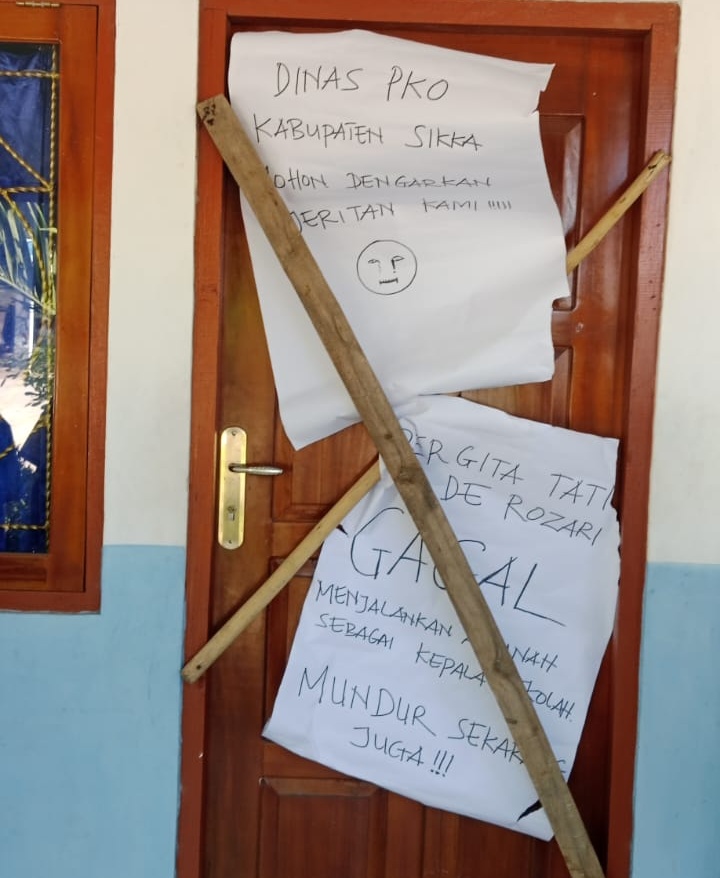 DINAS PKO
KABUPATEN SIKKA
MOHON DENGARKAN
JERITAN KAMI !!!!!
BERGITA TATI
DE ROZARI
GAGAL
MENJALANKAN AMANAH
SEBAGAI KEPALA SEKOLAH
MUNDUR SEKARANG
JUGA !!!